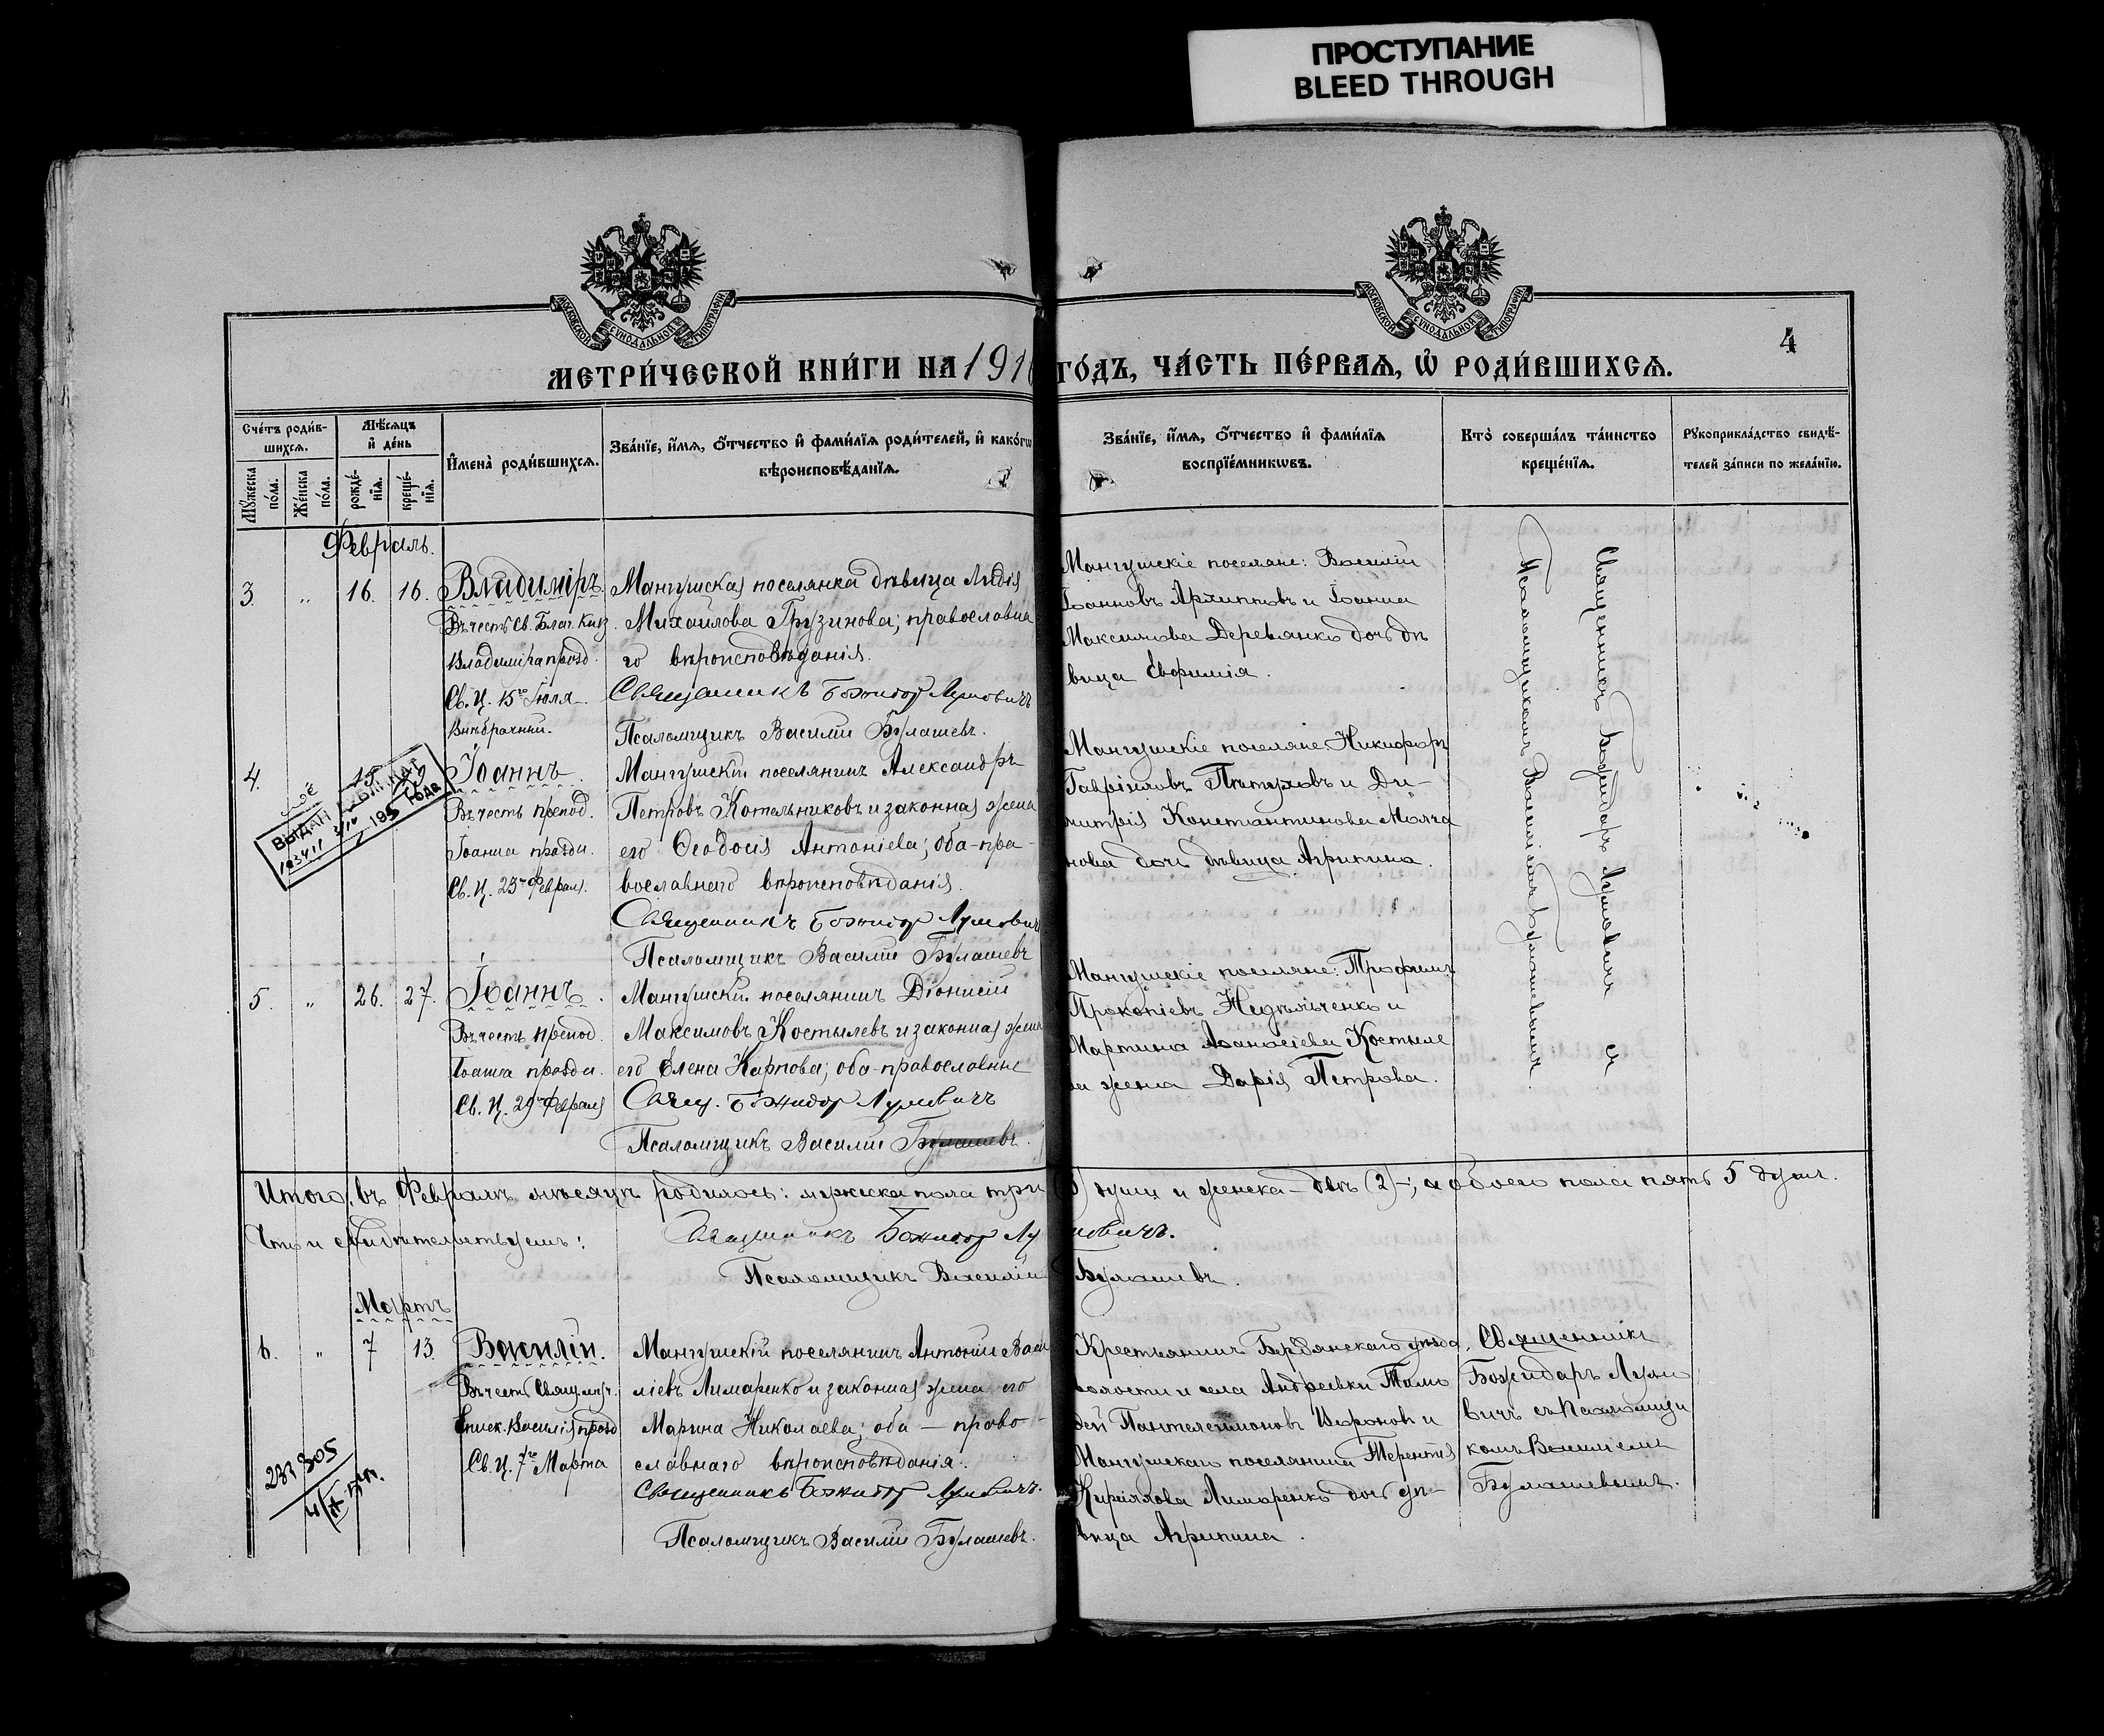 ПРОСТУПАНИЕ
BLEED THROUGH
МОСКОВСКОЙ СУНОДАЛЬНОЙ ТИПОГРАФІИ
МОСКОВСКОЙ СУНОДАЛЬНОЙ ТИПОГРАФІИ
4
МЕТРИ́ЧЕСКОЙ КНИ́ГИ НА 191 ГО́ДЪ, ЧА́СТЬ ПЕ́РВАѦ, Ѡ҆ РОДИ́ВШИХСѦ.
Сче́тъ роди́в-
шихсѧ.
Мꙋ́жеска по́ла.
Же́нска по́ла.
Мѣ́сѧцъ и҆ де́нь
рожде́-нїѧ.
креще́-нїѧ.
И҆мена̀ роди́вшихсѧ.
Зва́нїе, и҆́мѧ, ѻ҆́тчество и҆ фами́лїѧ роди́телей, и҆ како́гѡ
вѣроисповѣ́данїѧ.
Зва́нїе, и҆́мѧ, ѻ҆́тчество и҆ фами́лїѧ
воспрїе́мникѡвъ.
Кто̀ соверша́лъ та́инство
креще́нїѧ.
Рꙋкоприкла́дство свидѣ́-
телей за́писи по жела́нїю.
Февраль.
3. „ 16. 16. Владиміръ
Въ честь Св. Благ. Княз.
Владиміра празд.
Св. Ц. 15го Іюля.
Внѣбрачный.
Мангушская поселянка дѣвица Лидія
Михайлова Грузинова; православна
го вѣроисповѣданія.
Священникъ Божидар Лумовичъ
Псаломщикъ Василій Булашевъ.
Мангушскіе поселяне: Василій
Іоанновъ Архиповъ и Іоанна
Максимова Деревянко дочь дѣ
вица Евфимія.
4. Іоаннъ.
Въ честь препод.
Іоанна праздн.
Св. Ц. 23го Февраля.
ВЫДАН
195 года
Мангушскій поселянинъ Александръ
Петровъ Котельниковъ и законная жена
его Ѳеодосія Антоніева; оба-пра-
вославнаго вѣроисповѣданія.
Священникъ Божидар Лумович
Псаломщикъ Василій Булашевъ
Мангушскіе поселяне: Никифоръ
Гавріиловъ и Ди-
митрія Константинова Молча
нова дочь дѣвица Агрипина.
5. „ 26. 27. Іоаннъ.
Въ честь препод.
Іоанна праздн.
Св. Ц. 29го Февраля
Мангушскій поселянинъ Діонисій
Максимовъ Костылевъ и законная жена
его Елена Карпова; оба-православные
Свящ. Божидар Лумовичъ
Псаломщикъ Василій Булашевъ.
Мангушскіе поселяне: Трофимъ
Прокопіевъ Недѣльченко и
Мартина Аѳанасіева Костыле
ва жена Дарія Петрова.
Священникъ Божидаръ Лумовичъ съ
Псаломщикомъ Василіемъ Булашевымъ.
Итого, въ Февралѣ мѣсяцѣ родилось: мужеска пола три 3) душ и женска – двѣ (2) –, а обоего пола пять 5 душъ.
Что и свидѣтельствуемъ:
Священникъ Божидар Лумовичъ.
Псаломщикъ Василій Булашевъ.
Мартъ
6. „ 7 13. Василій.
Въ честь Свящ. муч.
Еписк. Василія празд
Св. Ц. 7го Марта
Мангушскій поселянинъ Антоній Васи
ліевъ Лимаренко и законная жена его
Марина Николаева; оба – право-
славнаго вѣроисповѣданія.
Священникъ Божидар Лумовичъ.
Псаломщикъ Василій Булашевъ.
Крестьянинъ Бердянскаго уѣзда,
волости и села Андреевки Тимо
фей Пантелеимоновъ и
Мангушскаго поселянина Терентія
Кириллова Лимаренко дочь дѣ-
вица Агрипина.
Священникъ
Божидаръ Лумо
вичъ съ Псаломщи
комъ Василіемъ
Булашевымъ.